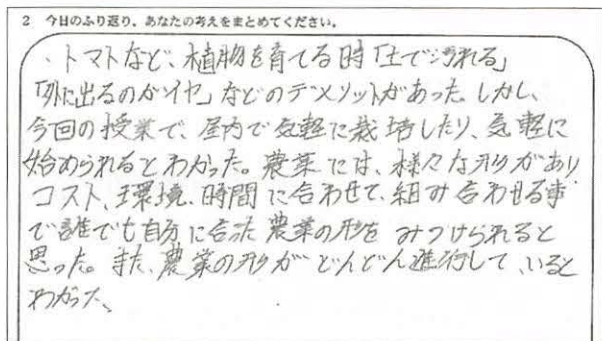 2 今日のふり返り、あなたの考えをまとめてください。
・トマトなど、植物を育てる時「土で汚れる」
「外に出るのがイヤ」などのデメリットがあった。しかし、
今回の授業で、屋内で気軽に栽培したり、気軽に
始められるとわかった。農業には、様々な形があり
コスト、環境、時間に合わせて、組み合わせる事
で誰でも自分に合った農業の形をみつけられると
思った。また、農業の形がどんどん進行して、いると
わかった、